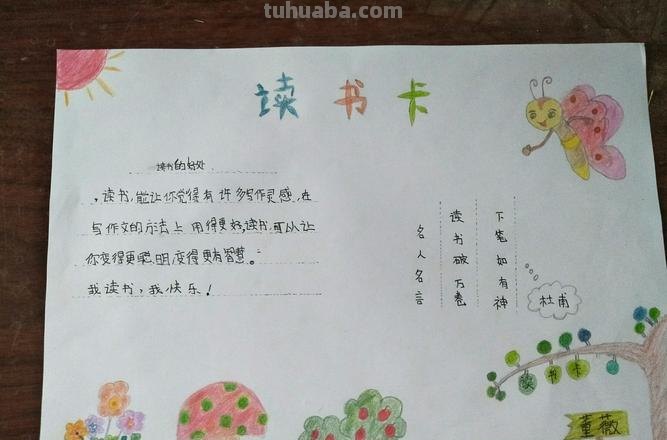 tuhuaba.com
读书卡
读书的好处
,读书,能让你觉得有许多写作灵感,在
写作文的方法上用得更好,读书可以让
你变得更聪明,变得更有智慧。
我读书,我快乐!
下笔如有神
读书破万卷
名人名言
杜甫
读书卡
董薇